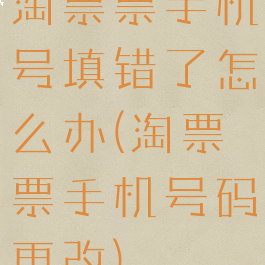 淘票票手机
号填错了怎
么办(淘票
票手机号码
更改)